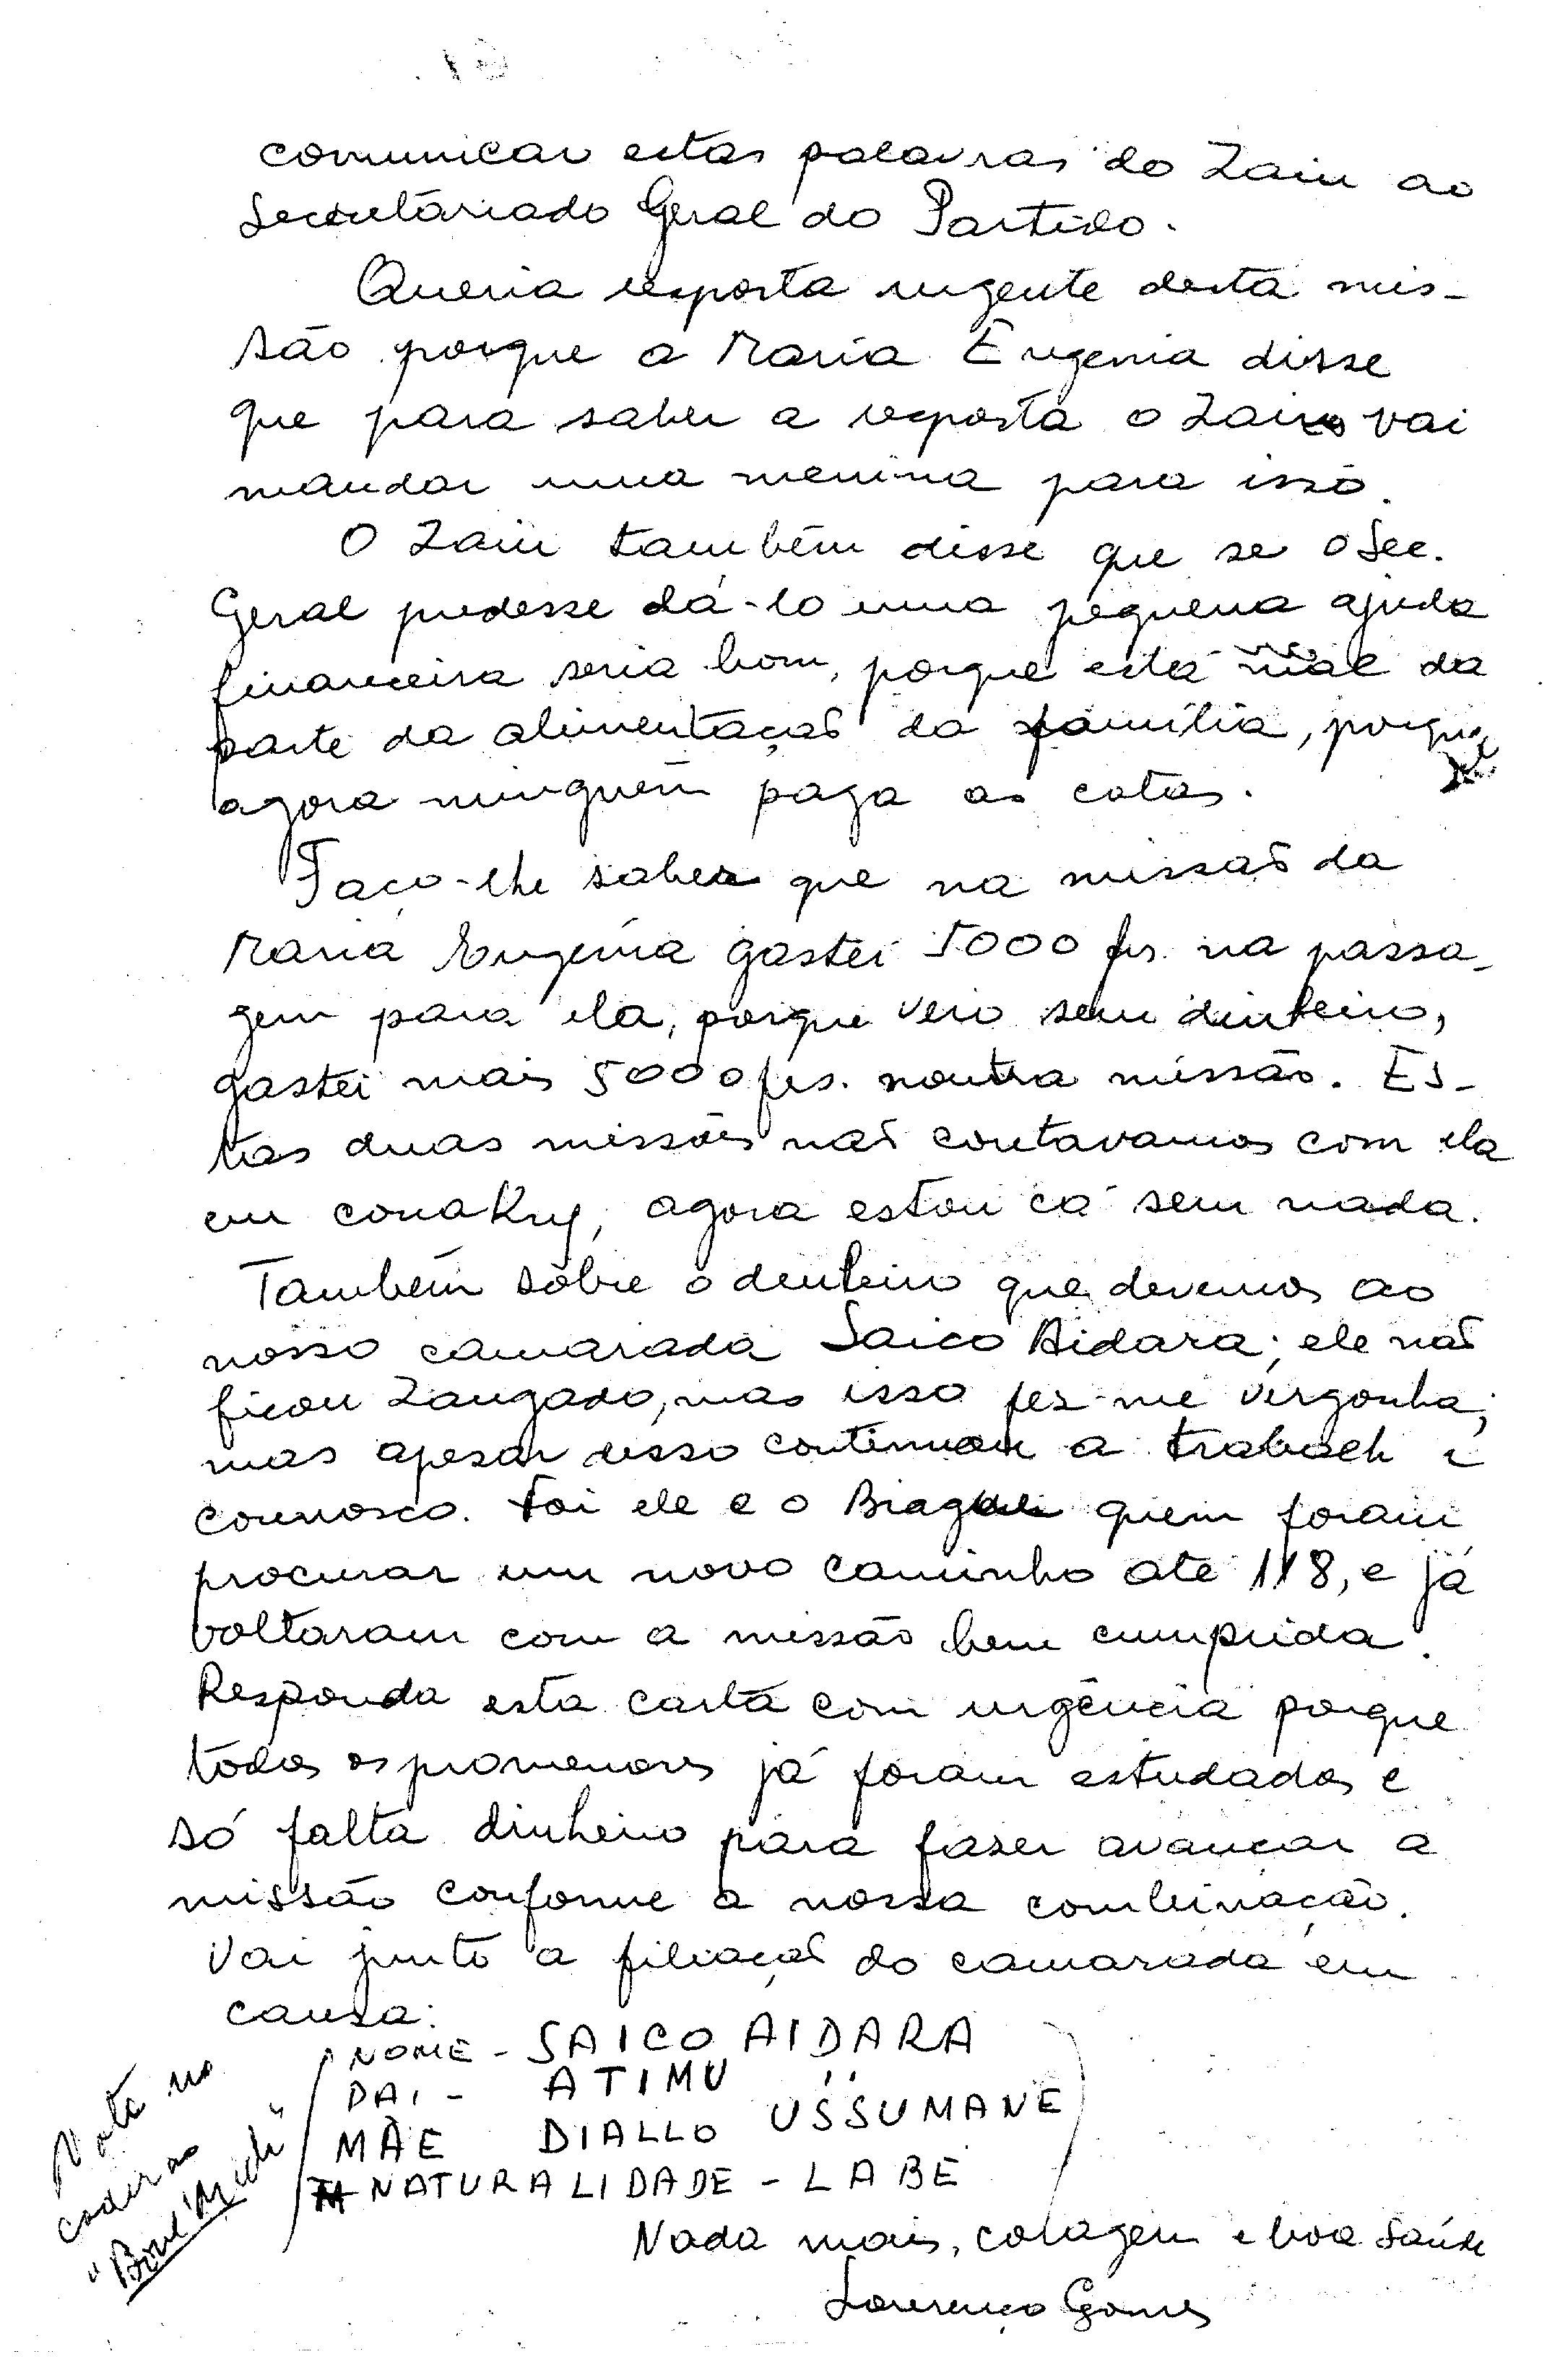 comunicar estas palavras do Zain ao
Secretáriado Geral do Partido.
Queria resposta urgente desta mis-
são porque a Maria Eugenia disse
que para saber a resposta o Zain vai
mandar uma menina para isso.
O Zain também disse que se o Sec.
Geral pudesse dá-lo uma pequena ajuda
financeira seria bom, porque está mal da
parte da alimentação da família, porque
agora ninguém paga as cotas.
Faço-lhe saber que na missão da
Maria Eugenia gastei 5000 frs. na passa-
gem para ela, porque veio sem dinheiro,
gastei mais 5000 frs. noutra missão. Es-
tas duas missões não contavamos com ela
em conakry, agora estou cá sem nada.
Também sôbre o denheiro que devemos ao
nosso camarada Saico Aidara; ele não
ficou zangado, mas isso fez-me vergonha;
mas apesar disso continua a trabalh
connosco. Foi ele e o quem foram
procurar um novo caminho até 118, e já
voltaram com a missão bem cumprida.
Responda esta carta com urgência porque
todos os promenores já foram estudados e
só falta dinheiro para fazer avançar a
missão conforme a nossa combinação.
Vai junto a filiação do camarada em
causa:
NOME - SAICO AIDARA
PAI - ATIMU "
MÃE DIALLO USSUMANE
NATURALIDADE - LABE
Note no
caderno
Nada mais, coragem e boa Saúde
Lourenço Gomes